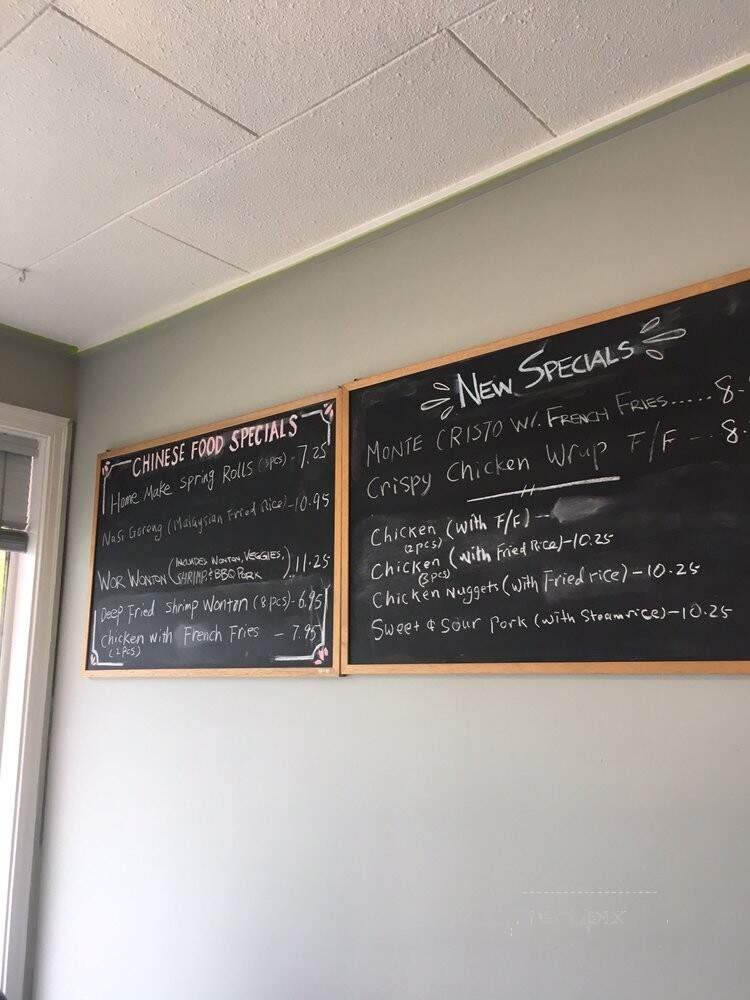 CHINESE FOOD SPECIALS
Home Make Spring Rolls (3pcs) - 7.25
Nasi Goreng (Malaysian Fried Rice) - 10.95
WOR WONTON (INCLUDES WONTON, VEGGIES, SHRIMP & BBQ PORK) .. 11.25
Deep Fried Shrimp Wonton (8pcs) - 6.95
Chicken with French Fries - 7.95
(2pcs)
NEW SPECIALS
MONTE CRISTO W/. FRENCH FRIES..... 8.
Crispy Chicken Wrap F/F -- 8.
Chicken (with F/F) -
(2pcs)
Chicken (with Fried Rice) - 10.25
Chicken Nuggets (with Fried rice) - 10.25
Sweet & Sour Pork (with Steamrice) - 10.25